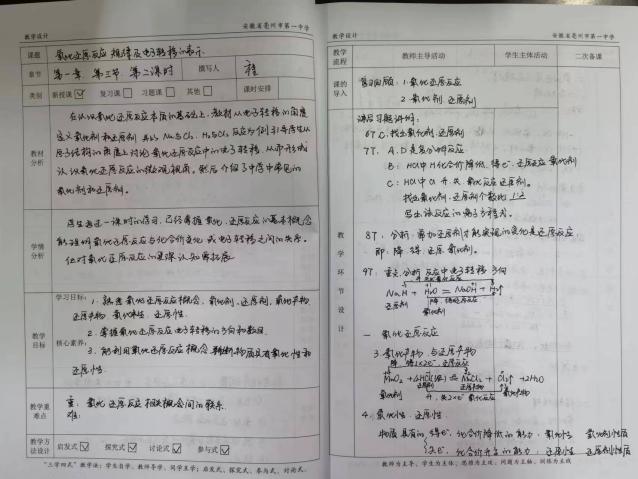 教学设计
安徽省亳州市第一中学
课题
氧化还原反应 规律及电子转移的表示
章节
第一章 第三节 第二课时
撰写人
类别
新授课 复习课 习题课 其他
课时安排
教材分析
在认识氧化还原反应本质的基础上,教材从电子转移的角度
定义氧化剂和还原剂 并以 Na与Cl₂、H₂与Cl₂ 反应为例引导学生从
原子结构的角度上讨论氧化还原反应中的电子转移,从而形成
认识氧化还原反应的微观视角。然后介绍了中学中常见的
氧化剂和还原剂。
学情分析
学生通过一课时的学习,已经掌握氧化还原反应的基本概念
能理解氧化还原反应与化合价变化或电子转移之间的关系。
但对氧化还原反应的
教学目标
学习目标:
1. 熟悉氧化还原反应概念,氧化剂、还原剂、氧化产物
还原产物 氧化性 还原性
2. 掌握氧化还原反应电子转移的方向和数目
核心素养:
3. 能利用氧化还原反应概念 判断物质具有氧化性和
还原性
教学重难点
重: 氧化还原反应相关概念间的联系
难:
教学方法设计
启发式 探究式 讨论式 参与式
“三学四式”教学法:学生自学、教师导学、同学互学;启发式、探究式、参与式、讨论式。
教学设计
安徽省亳州市第一中学
教学流程
教师主导活动
学生主体活动
二次备课
课的导入
复习回顾: 1. 氧化还原反应
2. 氧化剂 还原剂
教学环节设计
课后习题讲解:
6T C. 找出氧化剂、还原剂
7T. A. D 是复分解反应
B: HCl中H化合价降低、得e⁻、还原反应 氧化剂
C: HCl中Cl 升 失 氧化反应 还原剂.
找出氧化剂、还原剂个数比 1:2
写出该反应的离子方程式.
8T: 分析: 需加还原剂才能实现的变化是还原反应,
即: 降 得 还原 氧化剂.
9T: 重点分析 反应中电子转移方向
NaH + H₂O = NaOH + H₂↑
还原剂 氧化剂
一 氧化还原反应
3. 氧化产物 与还原产物
降 得2e⁻, 还原反应
MnO₂ + 4HCl(浓) = MnCl₂ + Cl₂↑ + 2H₂O
氧化剂 还原剂 还原产物 氧化产物
升, 失2×e⁻ 氧化反应
4. 氧化性 还原性
物质具有的 得e⁻, 化合价降低的能力: 氧化性 氧化剂性质
失e⁻ 化合价升高的能力: 还原性 还原剂性质
教师为主导、学生为主体、思维为主攻、问题为主轴、训练为主线